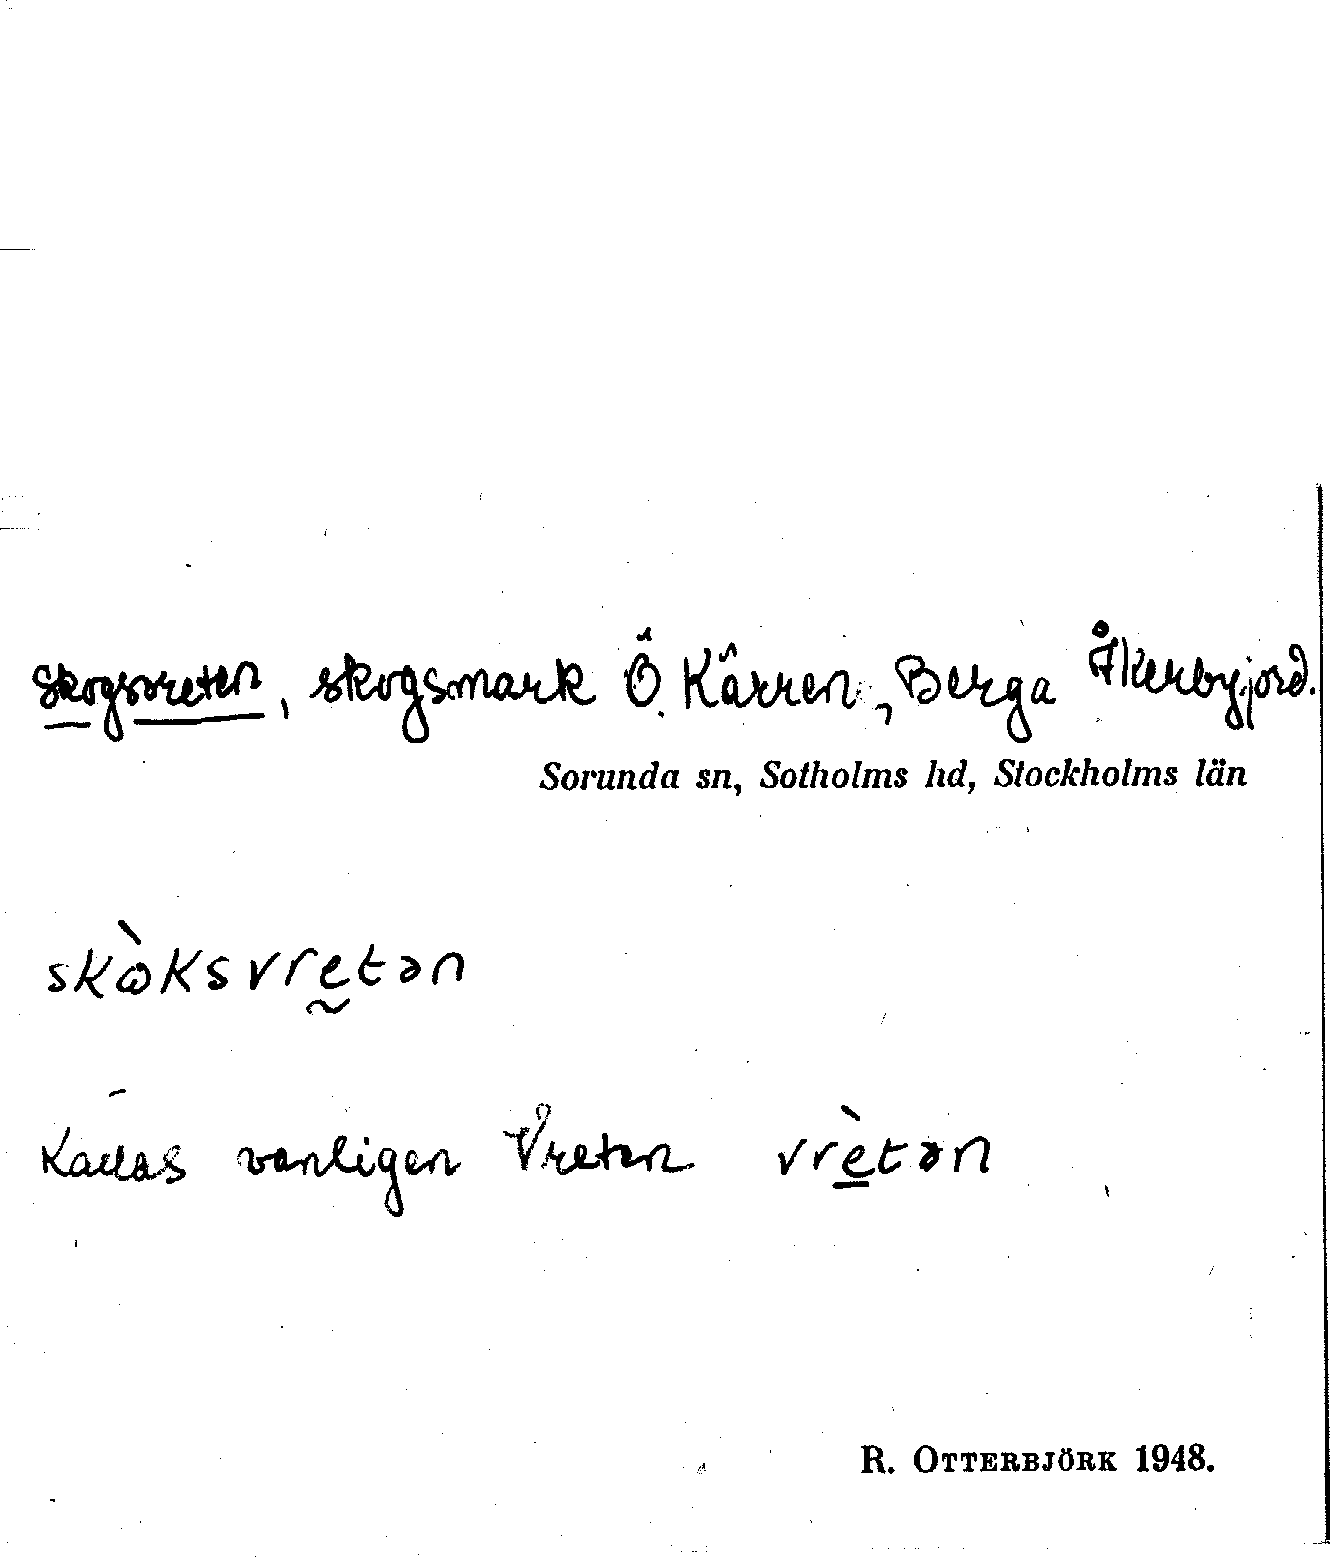 Skogsvreten, skogsmark Ö. Kärren, Berga Åkerbyjord.
Sorunda sn, Sotholms hd, Stockholms län
skὼksvrḛtən
Kallas vanligen Vreten vrè̱tən
R. OTTERBJÖRK 1948.